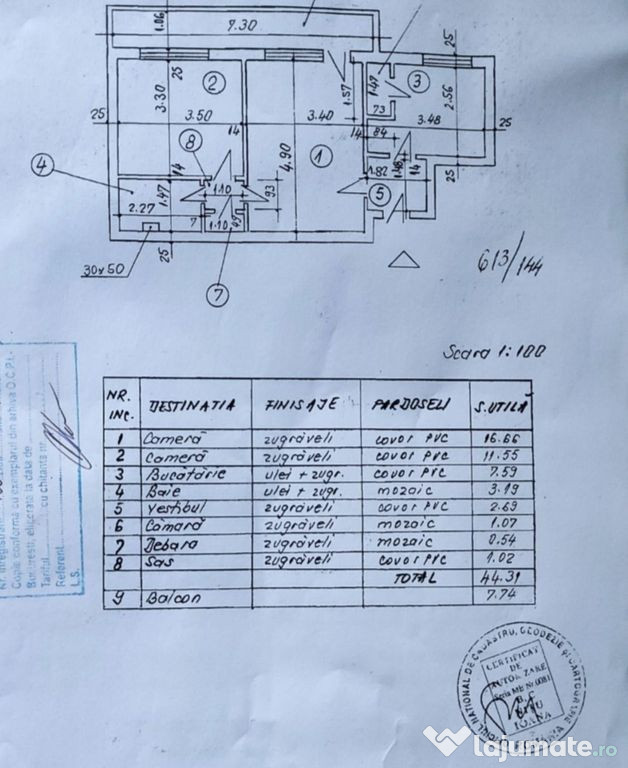 1.06
7.30
25
25
2
1.47
3
3.30
1.57
2.56
25
3.50
3.40
73
3.48
25
14
14
84
8
4
14
4.90
1
1.82
1.48
14
25
1.47
1.10
93
5
2.27
7
1.10
49
30x50
25
7
613/144
Scara 1:100
NR. INC. DESTINATIA FINISAJE PARDOSELI S.UTILĂ
1 Cameră zugrăveli covor PVC 16.66
2 Cameră zugrăveli covor PVC 11.55
3 Bucătărie ulei + zugr. covor PVC 7.59
4 Baie ulei + zugr. mozaic 3.19
5 Vestibul zugrăveli covor PVC 2.69
6 Cămară zugrăveli mozaic 1.07
7 Debara zugrăveli mozaic 0.54
8 Sas zugrăveli covor PVC 1.02
TOTAL 44.31
9 Balcon 7.74
Copie conformă cu exemplarul din arhiva O.C.P.I.
Bucuresti, eliberata la data de
Tariful cu chitanta nr.
Referent
L.S.
NATIONAL DE CADASTRU, GEODEZIE SI CARTOGRAFIE
CERTIFICAT
DE
AUTORIZARE
Seria MB Nr.0081
IOANA
lajumate.ro